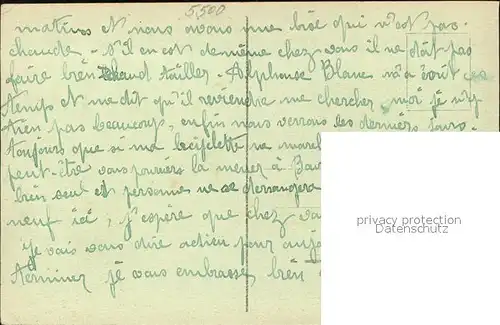 5500
matins et nous avons une bise qui n'est pas
chaude - s'il en est de même chez vous il ne doit pas
faire bien chaud tailler - Alphonse Blanc m'a écrit ces
temps et me dit qu'il reviendra me chercher, moi je n'y
tien pas beaucoup, enfin nous verrons les derniers jours
toujours que si ma bicyclette na march
peut-être vous pourriez la mener à
bien seul et personne ne se dérangera
neuf ici, j'espère que chez vous
Je vais vous dire adieu pour auj
terminer je vous embrasse bien
privacy protection
Datenschutz